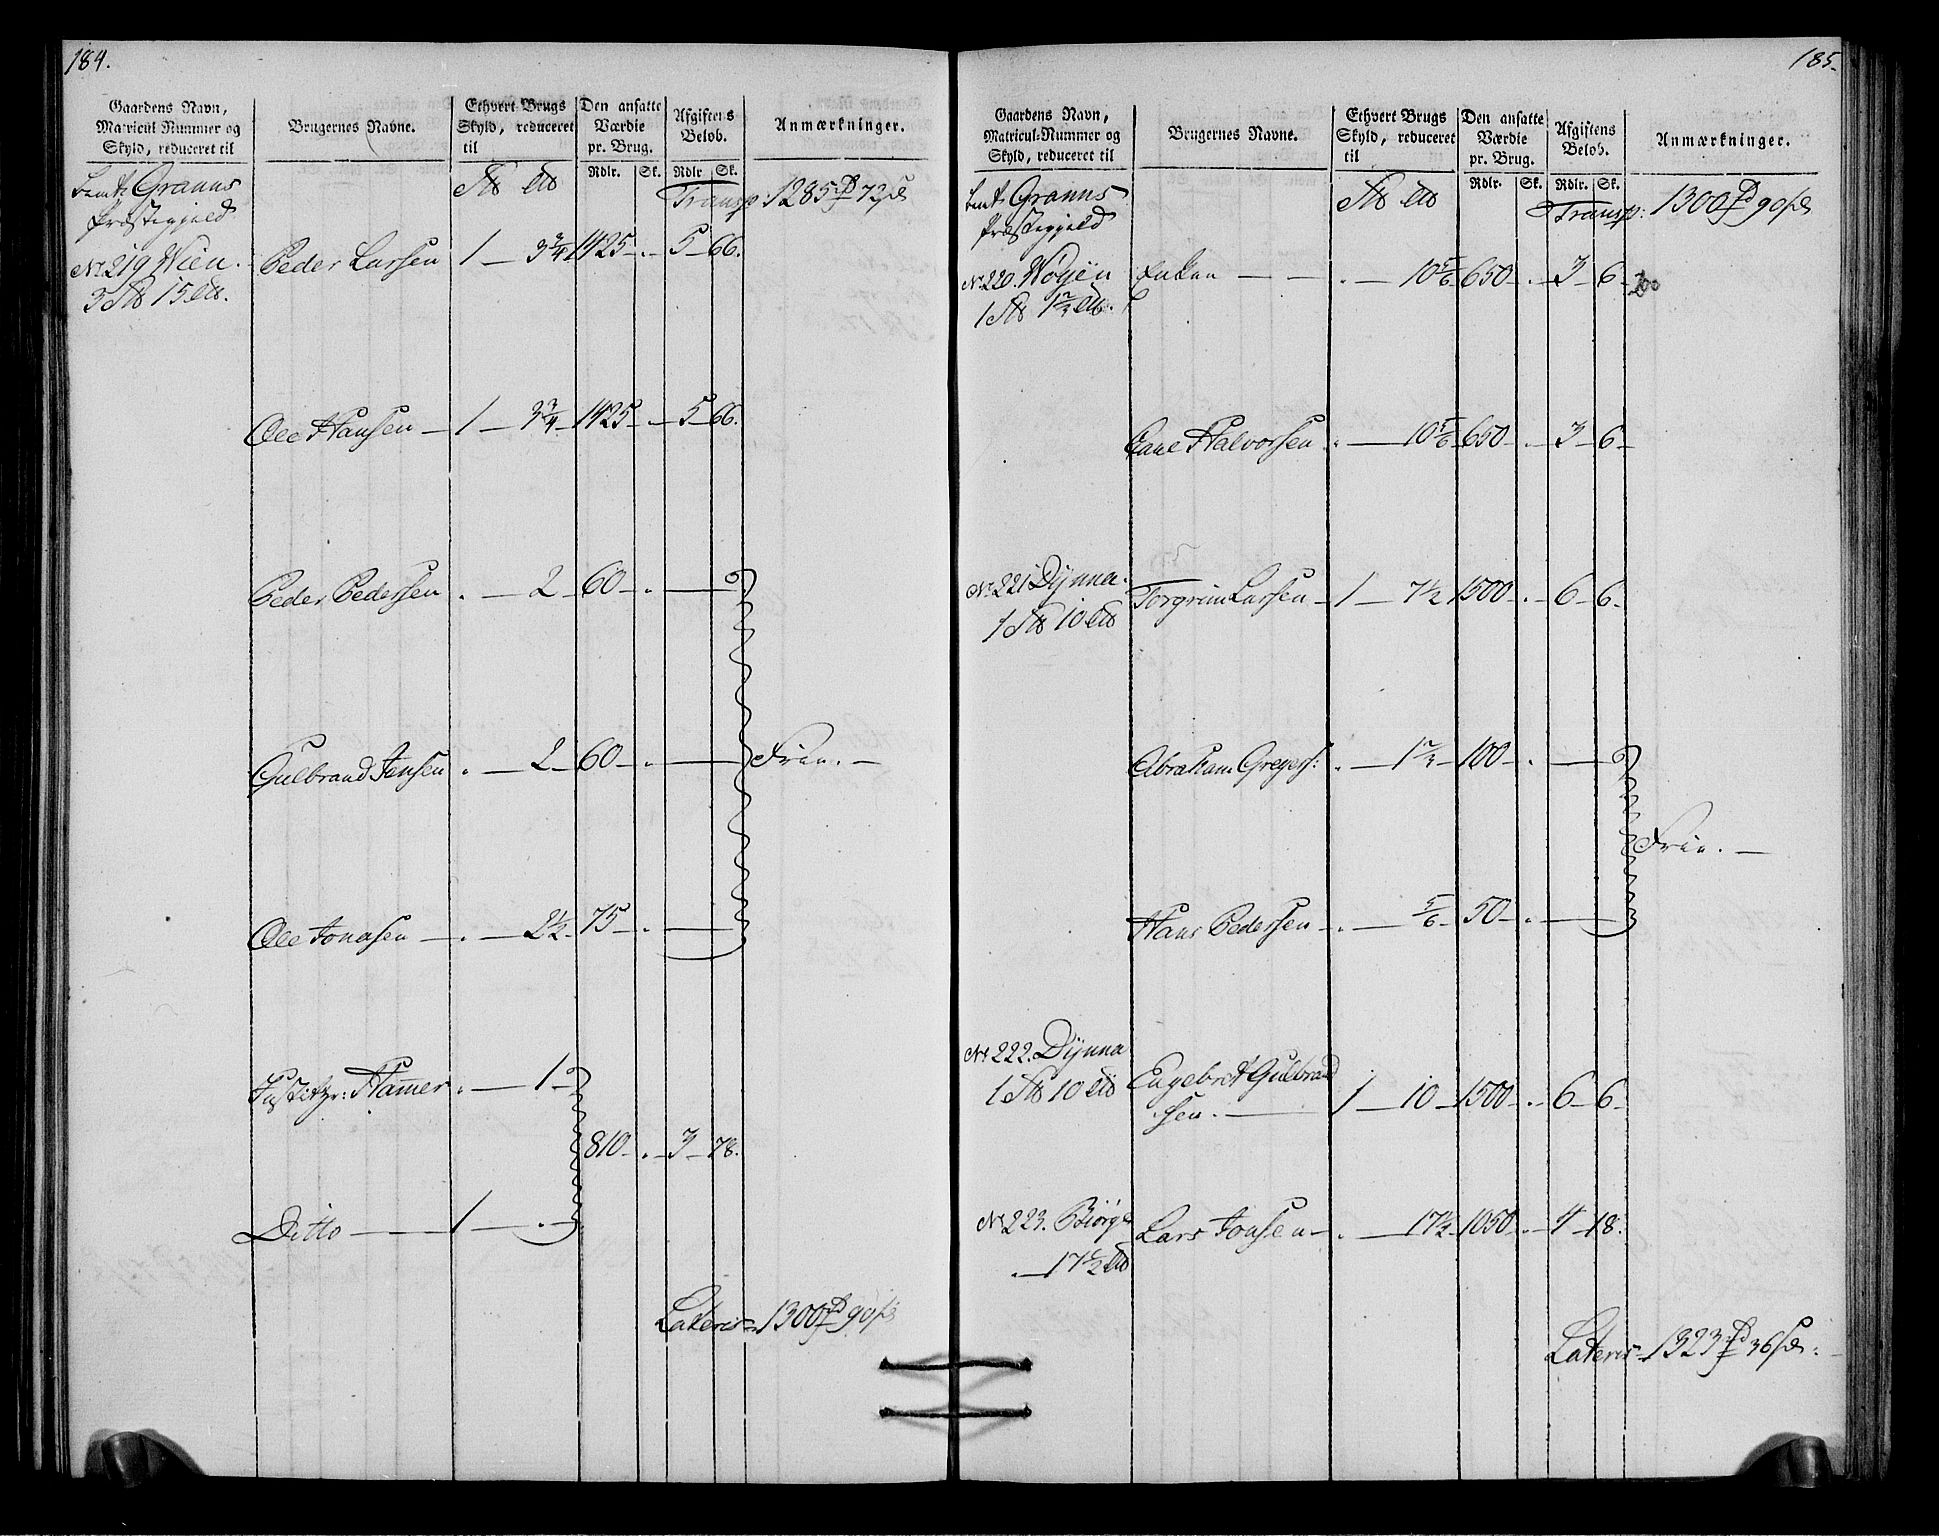 184.
Gaardens Navn,
Matricul Nummer og
Skyld, reduceret til
Brugernes Navne.
Ethvert Brugs
Skyld, reduceret
til
Den ansatte
Værdie
pr. Brug.
Rdlr. Sk.
Afgiftens
Beløb.
Rdlr Sk.
Anmærkninger.
Granns
Præstegjeld
Transp: 1285 72
No 219 Wien.
3 15
Peder Larsen 1 — 3 3/4 1425 — . — 5 — 66.
Ole Hansen — 1 — 3 3/4 1425 — . — 5 — 66.
Peder Pedersen . — 2 — 60 — . —
Gulbrand Jensen . — 2 — 60 — . — Frie. —
Ole Jonasen — . — 2 1/2 — 75 — . —
Justitzr: Hammer . — 1 —
810 — . — 3 — 78.
Ditto — 1 — . —
Lateris 1300 90
185.
Gaardens Navn,
Matricul-Nummer og
Skyld, reduceret til
Brugernes Navne.
Ethvert Brugs
Skyld, reduceret
til
Den ansatte
Værdie
pr. Brug.
Rdlr. Sk.
Afgiftens
Beløb.
Rdlr. Sk.
Anmærkninger.
Granns
Præstegjeld
Transp: 1300 90
No 220. Wøyen
1 1 2/3
Enken — — . — 10 5/6 650 — . — 3 — 6 —
Halvorsen . — 10 5/6 650 — . — 3 — 6 —
No 221 Dynna.
1 10
Torgrim Larsen — 1 — 7 1/2 1500 — . — 6 — 6 —
Abraham Gregers: . — 1 2/3 — 100 — . —
Frie. —
Hans Pedersen — . — 5/6 — 50 — . —
No 222. Dynna
1 10
Engebret Gulbrand
sen. — 1 — 10 — 1500 — . — 6 — 6 —
No 223. Biørge
. — 17 1/2
Lars Jonsen — . — 17 1/2 1050 — . — 4 — 18.
Lateris 1323 36